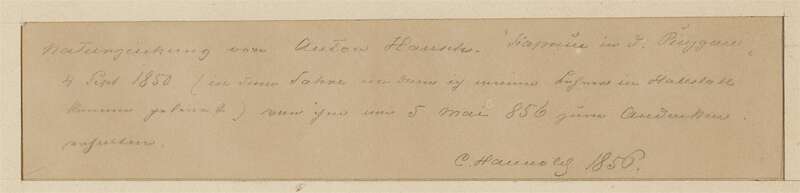 Naturzeichnung von Anton Hansch. Ramsau in d.
4 Sept 1850 (in dem Jahre in dem ich meinen Lehrer in Hallstatt
kennen gelernt) von ihm am 5 Mai 856 zum Andenken
erhalten.
C. Hannold 1856.